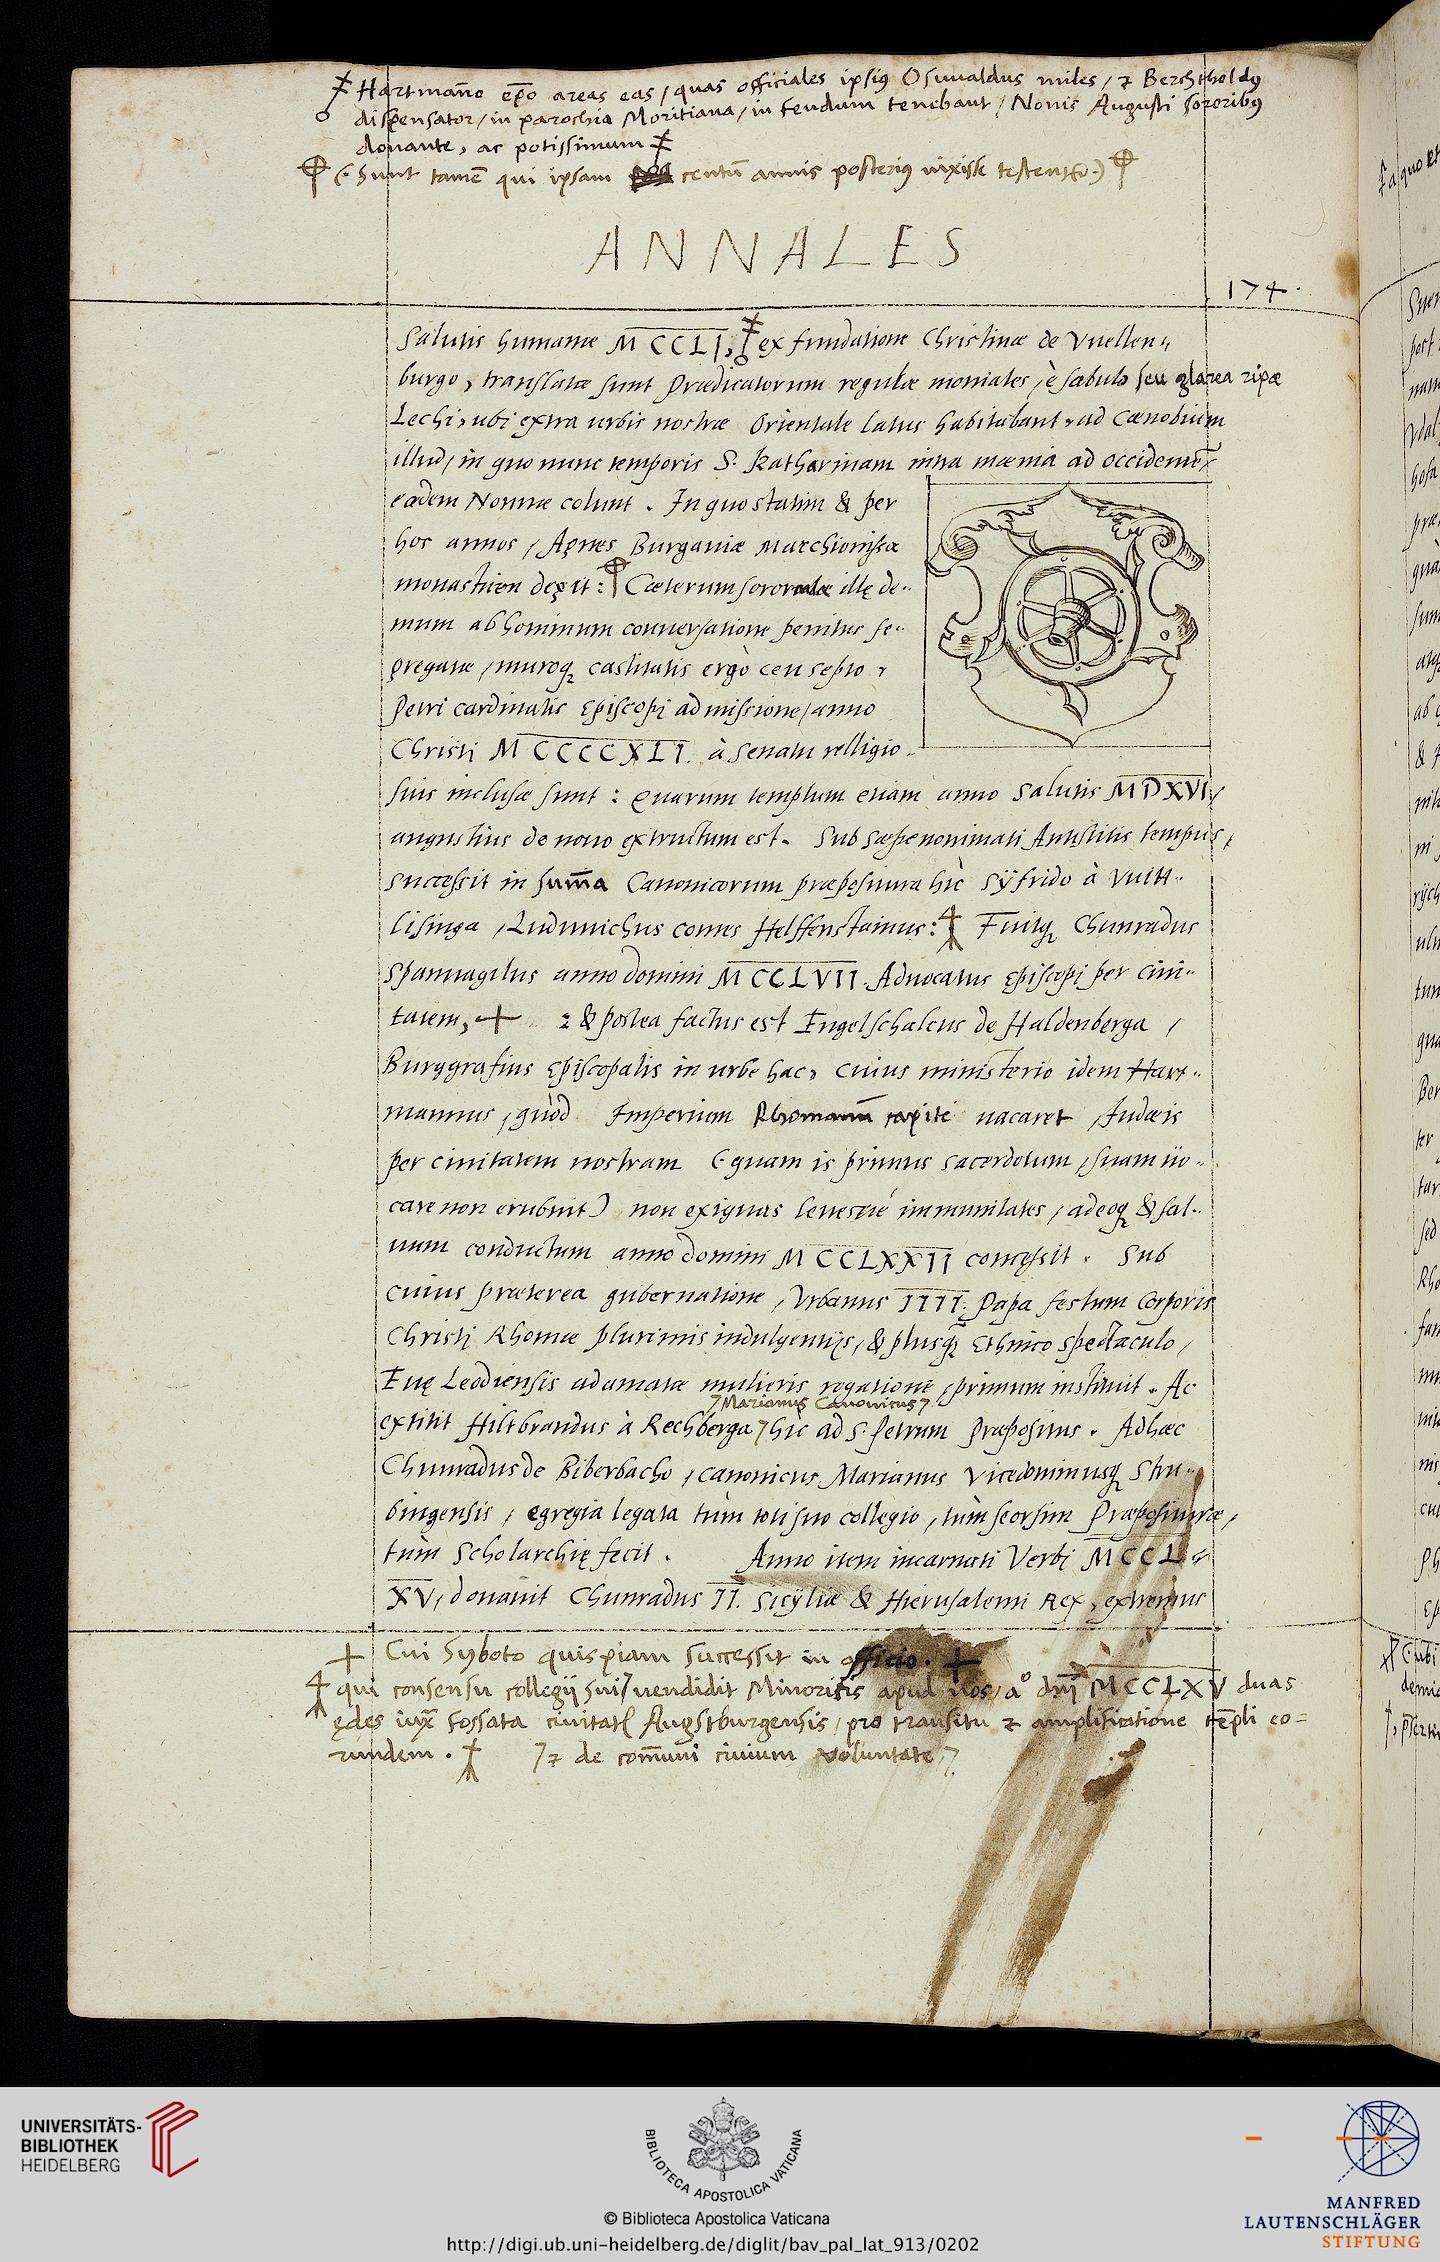 Hartmano epo areas eas, quas officiales ipsius Osuualdus miles, & Berchtholdus
dispensator, in parochia Moritiana, in feudum tenebant, Nonis Augusti sororibus
donante, ac potissimum
(Sunt tamē qui ipsam centū annis posterius vixisse testentur.)
ANNALES
174.
Salutis humanæ MCCLI, ex fundatione Christinæ de Vuellen-
burgo, translatæ sunt Prædicatorum regulæ moniales, è sabulo seu glarea ripæ
Lechi, ubi extra urbis nostræ Orientale latus habitabant, ad Cænobium
illud, in quo nunc temporis S. Katharinam intra mænia ad occidentē,
eædem Nonnæ colunt. In quo statim & per
hos annos, Agnes Burgauiæ Marchionissa
monastrien degit: Cæterum sororculæ illę de-
mum ab hominum conuersatione penitus se-
gregatæ, muroq; castitatis ergò ceu septo,
Petri cardinalis Episcopi admissione, anno
Christi MCCCCXLI. à Senatu relligio-
sius inclusæ sunt: Quarum templum etiam anno Salutis MDXVI,
angustius de nouo extructum est. Sub sæpenominati Antistitis tempus,
successit in summa Canonicorum præpositura hic Sÿfrido à Vuitt-
lisinga, Luduuichus comes Helffenstainus: Fuitq; Chunradus
Spannagelus anno domini MCCLVII. Aduocatus Episcopi per ciui-
tatem, & postea factus est Engelschalcus de Haldenberga,
Burggrafius Episcopalis in urbe hac, cuius ministerio idem Hart-
mannus, quòd Imperium Rhomanū capite uacaret, Judæis
per ciuitatem nostram (quam is primus sacerdotum, suam uo-
care non erubuit) non exiguas immunitates, adeoq; & sal-
uum conductum anno domini MCCLXXII concessit. Sub
cuius præterea gubernatione, Urbanus IIII. Papa festum Corporis
Christi Rhomæ plurimis indulgentijs, & plusq̃ Ethnico spectaculo,
Euę Leodiensis adamatæ mulieris rogatione, primum instituit. Ac
Marianus Canonicus
extitit Hiltbrandus à Rechberga hic ad S. Petrum Præpositus. Adhæc
Chunradus de Biberbacho, canonicus Marianus Vicedominusq; Stru-
bingensis, egregia legata tùm toti suo collegio, tùm seorsim Præposituræ,
tùm Scholarchię fecit. Anno item incarnati Verbi MCCL-
XV, donauit Chunradus II. Siçÿliæ & Hierusalemi Rex, extremus
Cui Syboto quispiam successit in officio.
qui consensu collegij sui, uendidit Minoritis apud nos, a° dnj MCCLXV duas
ędes iuxta fossata ciuitatis Augstburgensis, pro transitu & amplificatione tēpli eo=
rundem. & de comuni ciuium voluntate
a quo et
UNIVERSITÄTS-
BIBLIOTHEK
HEIDELBERG
BIBLIOTECA APOSTOLICA VATICANA
© Biblioteca Apostolica Vaticana
http://digi.ub.uni-heidelberg.de/diglit/bav_pal_lat_913/0202
MANFRED
LAUTENSCHLÄGER
STIFTUNG